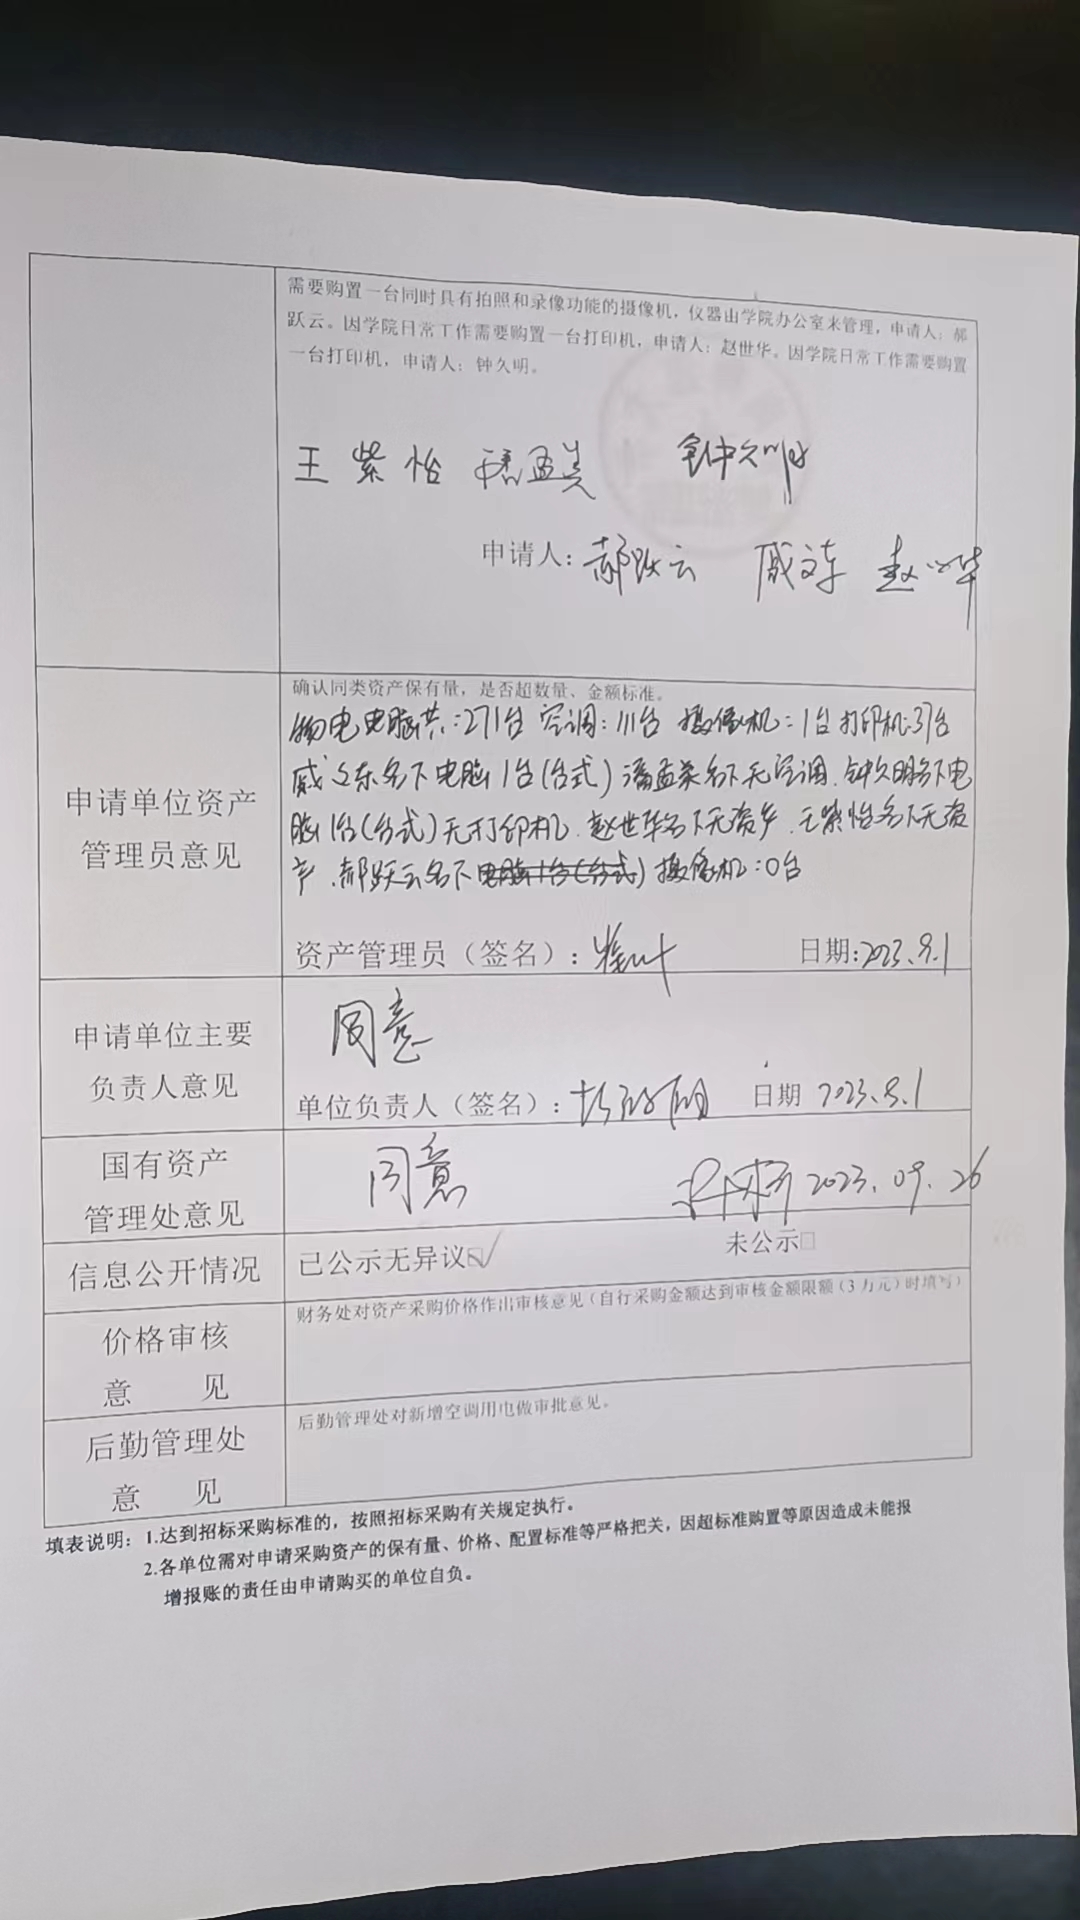 需要购置一台同时具有拍照和录像功能的摄像机，仪器由学院办公室来管理，申请人：郝
跃云。因学院日常工作需要购置一台打印机，申请人：赵世华。因学院日常工作需要购置
一台打印机，申请人：钟久明。
王紫怡 潘孟美 钟久明
申请人：郝跃云 戚文东 赵世华
申请单位资产
管理员意见
确认同类资产保有量，是否超数量、金额标准。
物电电脑共：271台 空调：111台 摄像机：1台 打印机：37台
戚文东名下电脑1台(台式) 潘孟美名下无空调．钟久明名下电
脑1台(台式)无打印机．赵世华名下无资产．王紫怡名下无资
产．郝跃云名下电脑1台(台式)摄像机：0台
资产管理员（签名）：
日期：2023.9.1
申请单位主要
负责人意见
同意
单位负责人（签名）：
日期 2023.9.1
国有资产
管理处意见
同意
2023.09.26
信息公开情况
已公示无异议☑
未公示□
价格审核
意 见
财务处对资产采购价格作出审核意见（自行采购金额达到审核金额限额（3万元）时填写）
后勤管理处
意 见
后勤管理处对新增空调用电做审批意见。
填表说明：1.达到招标采购标准的，按照招标采购有关规定执行。
2.各单位需对申请采购资产的保有量、价格、配置标准等严格把关，因超标准购置等原因造成未能报
增报账的责任由申请购买的单位自负。